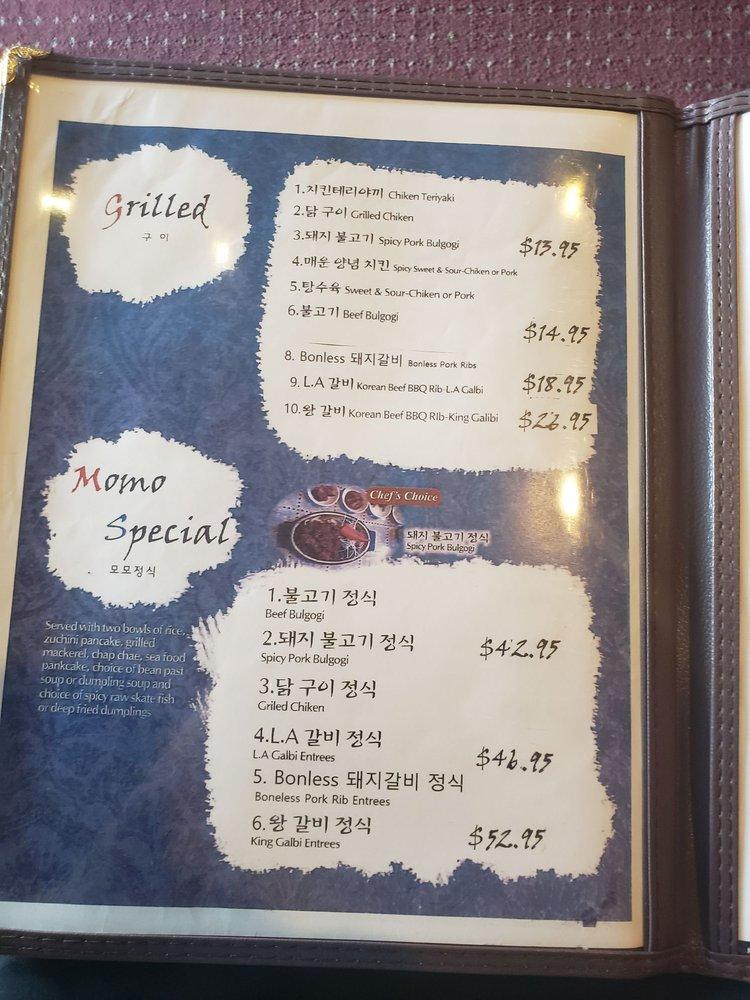 Grilled
구 이
1.치킨테리야끼 Chiken Teriyaki
2.닭 구이 Grilled Chiken
3.돼지 불고기 Spicy Pork Bulgogi $13.95
4.매운 양념 치킨 Spicy Sweet & Sour-Chiken or Pork
5.탕수육 Sweet & Sour-Chiken or Pork
6.불고기 Beef Bulgogi
$14.95
8. Bonless 돼지갈비 Bonless Pork Ribs
9. L.A 갈비 Korean Beef BBQ Rib-L.A Galbi $18.95
10.왕 갈비 Korean Beef BBQ RIb-King Galibi $26.95
Momo
Special
모모정식
Chef's Choice
돼지 불고기 정식
Spicy Pork Bulgogi
Served with two bowls of rice,
zuchini pancake, grilled
mackerel, chap chae, sea food
pankcake, choice of bean past
soup or dumpling soup and
choice of spicy raw skate fish
or deep fried dumplings
1.불고기 정식
Beef Bulgogi
2.돼지 불고기 정식 $42.95
Spicy Pork Bulgogi
3.닭 구이 정식
Griled Chiken
4.L.A 갈비 정식
L.A Galbi Entrees $46.95
5. Bonless 돼지갈비 정식
Boneless Pork Rib Entrees
6.왕 갈비 정식 $52.95
King Galbi Entrees